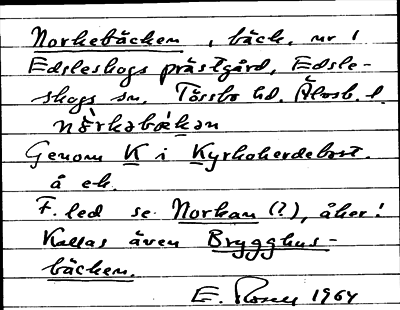 Norkebäcken, bäck, nr 1
Edsleskogs prästgård, Edsle-
skogs sn. Tössbo hd. Älvsb. l.
nò̀rkəbækan
Genom K i Kyrkoherdebost.
å ek.
F. led se Norkan (?), åker!
Kallas även Brygghus-
bäcken.
E. Rosell 1964